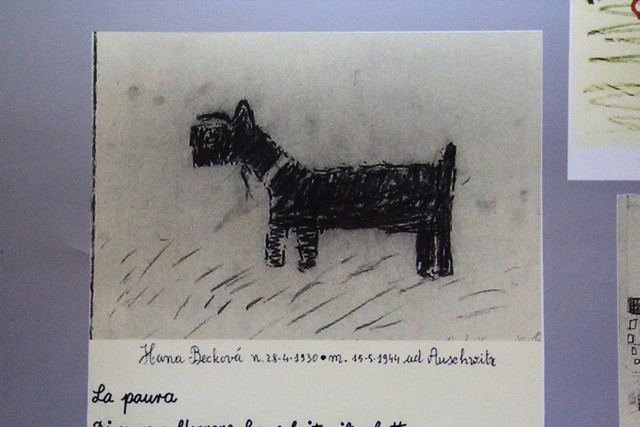 Hana Becková n. 28-4-1930 • m. 15-5-1944 ad Auschwitz
La paura